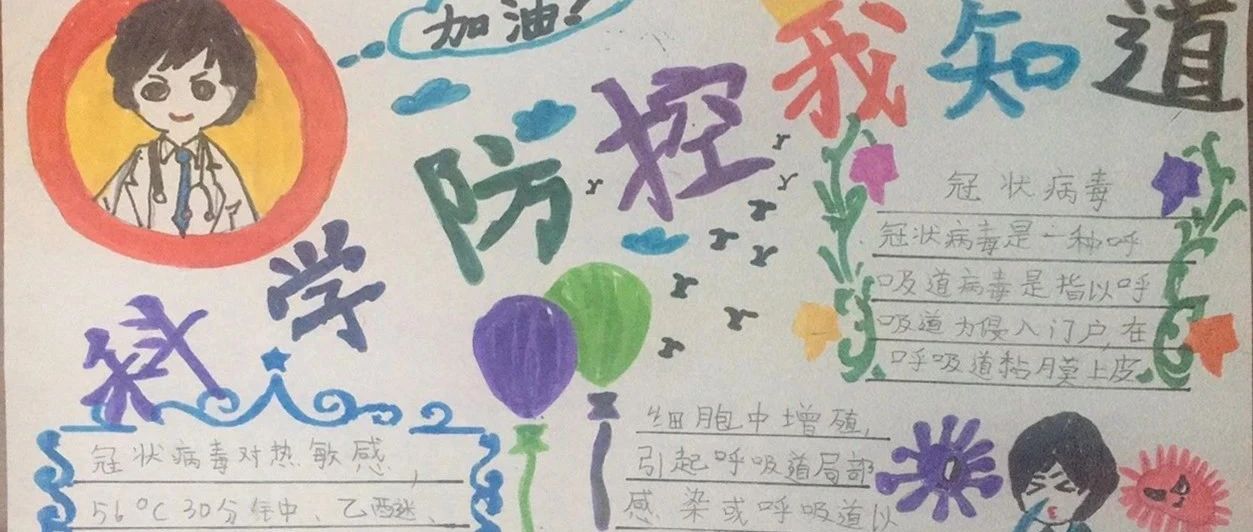 加油!
科学防控我知道
冠状病毒
冠状病毒是一种呼
吸道病毒是指以呼
吸道为侵入门户,在
呼吸道黏膜上皮
细胞中增殖,
引起呼吸道局部
感染或呼吸道以
冠状病毒对热敏感,
56°C 30分钟中、乙醚、